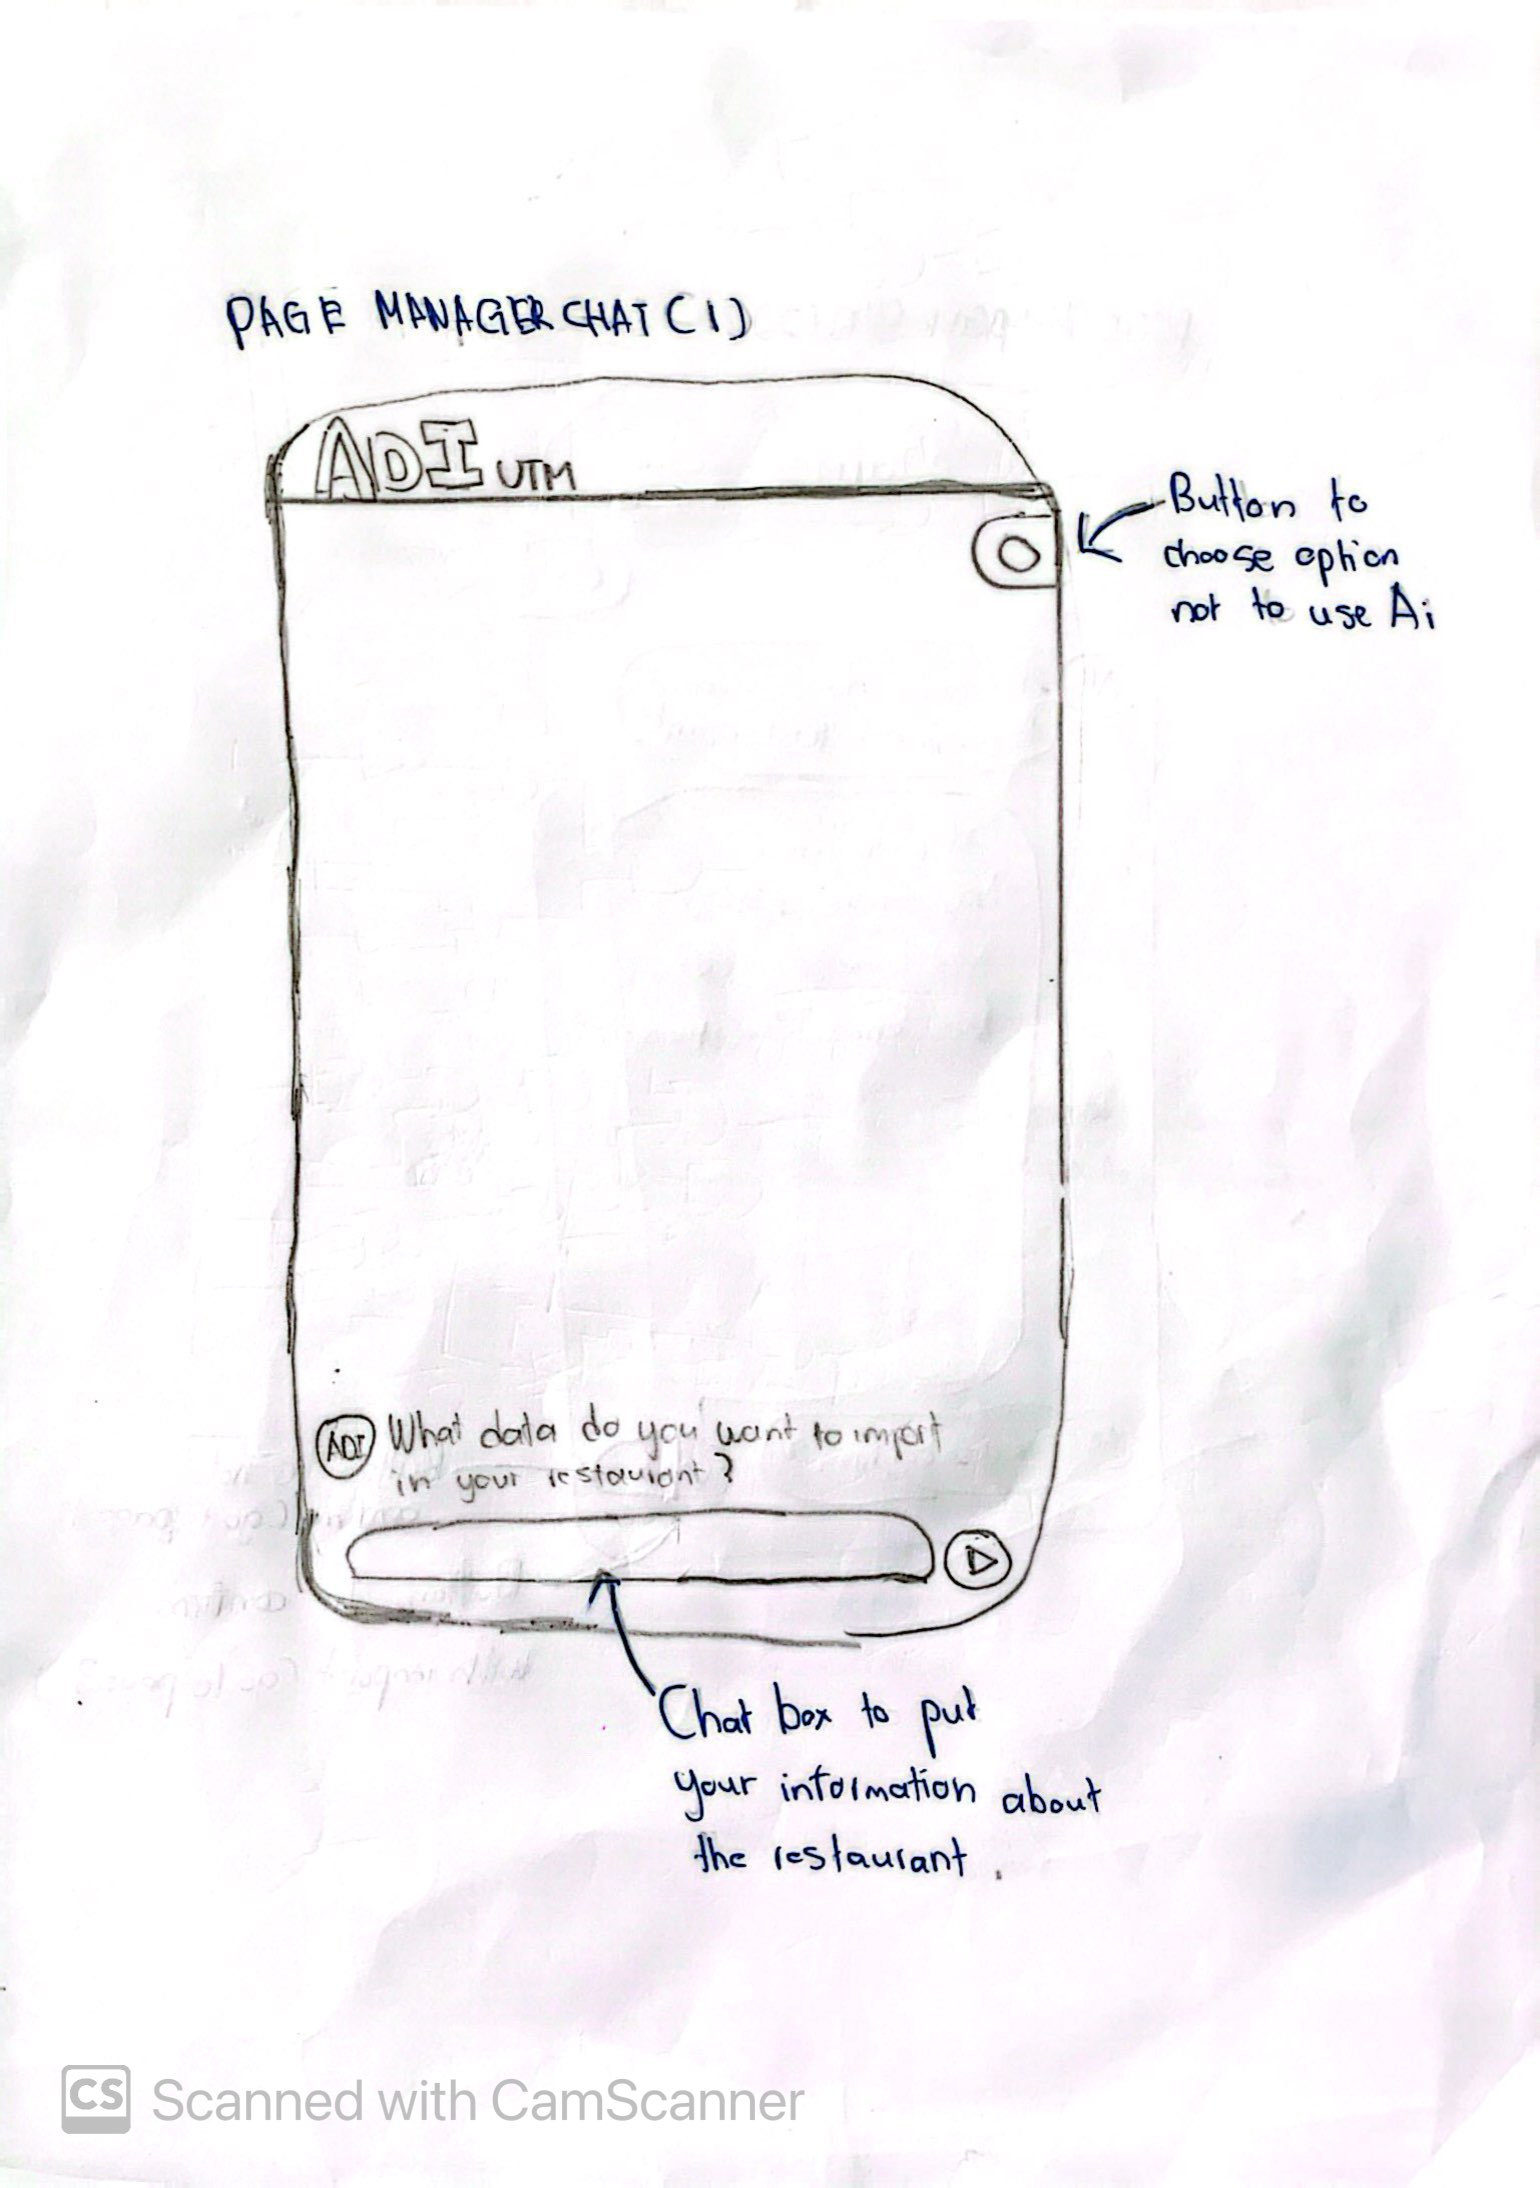 PAGE MANAGER CHAT (1)
ADI UTM
Button to
choose option
not to use Ai
ADI What data do you want to import
in your restaurant?
Chat box to put
your information about
the restaurant.
CS Scanned with CamScanner